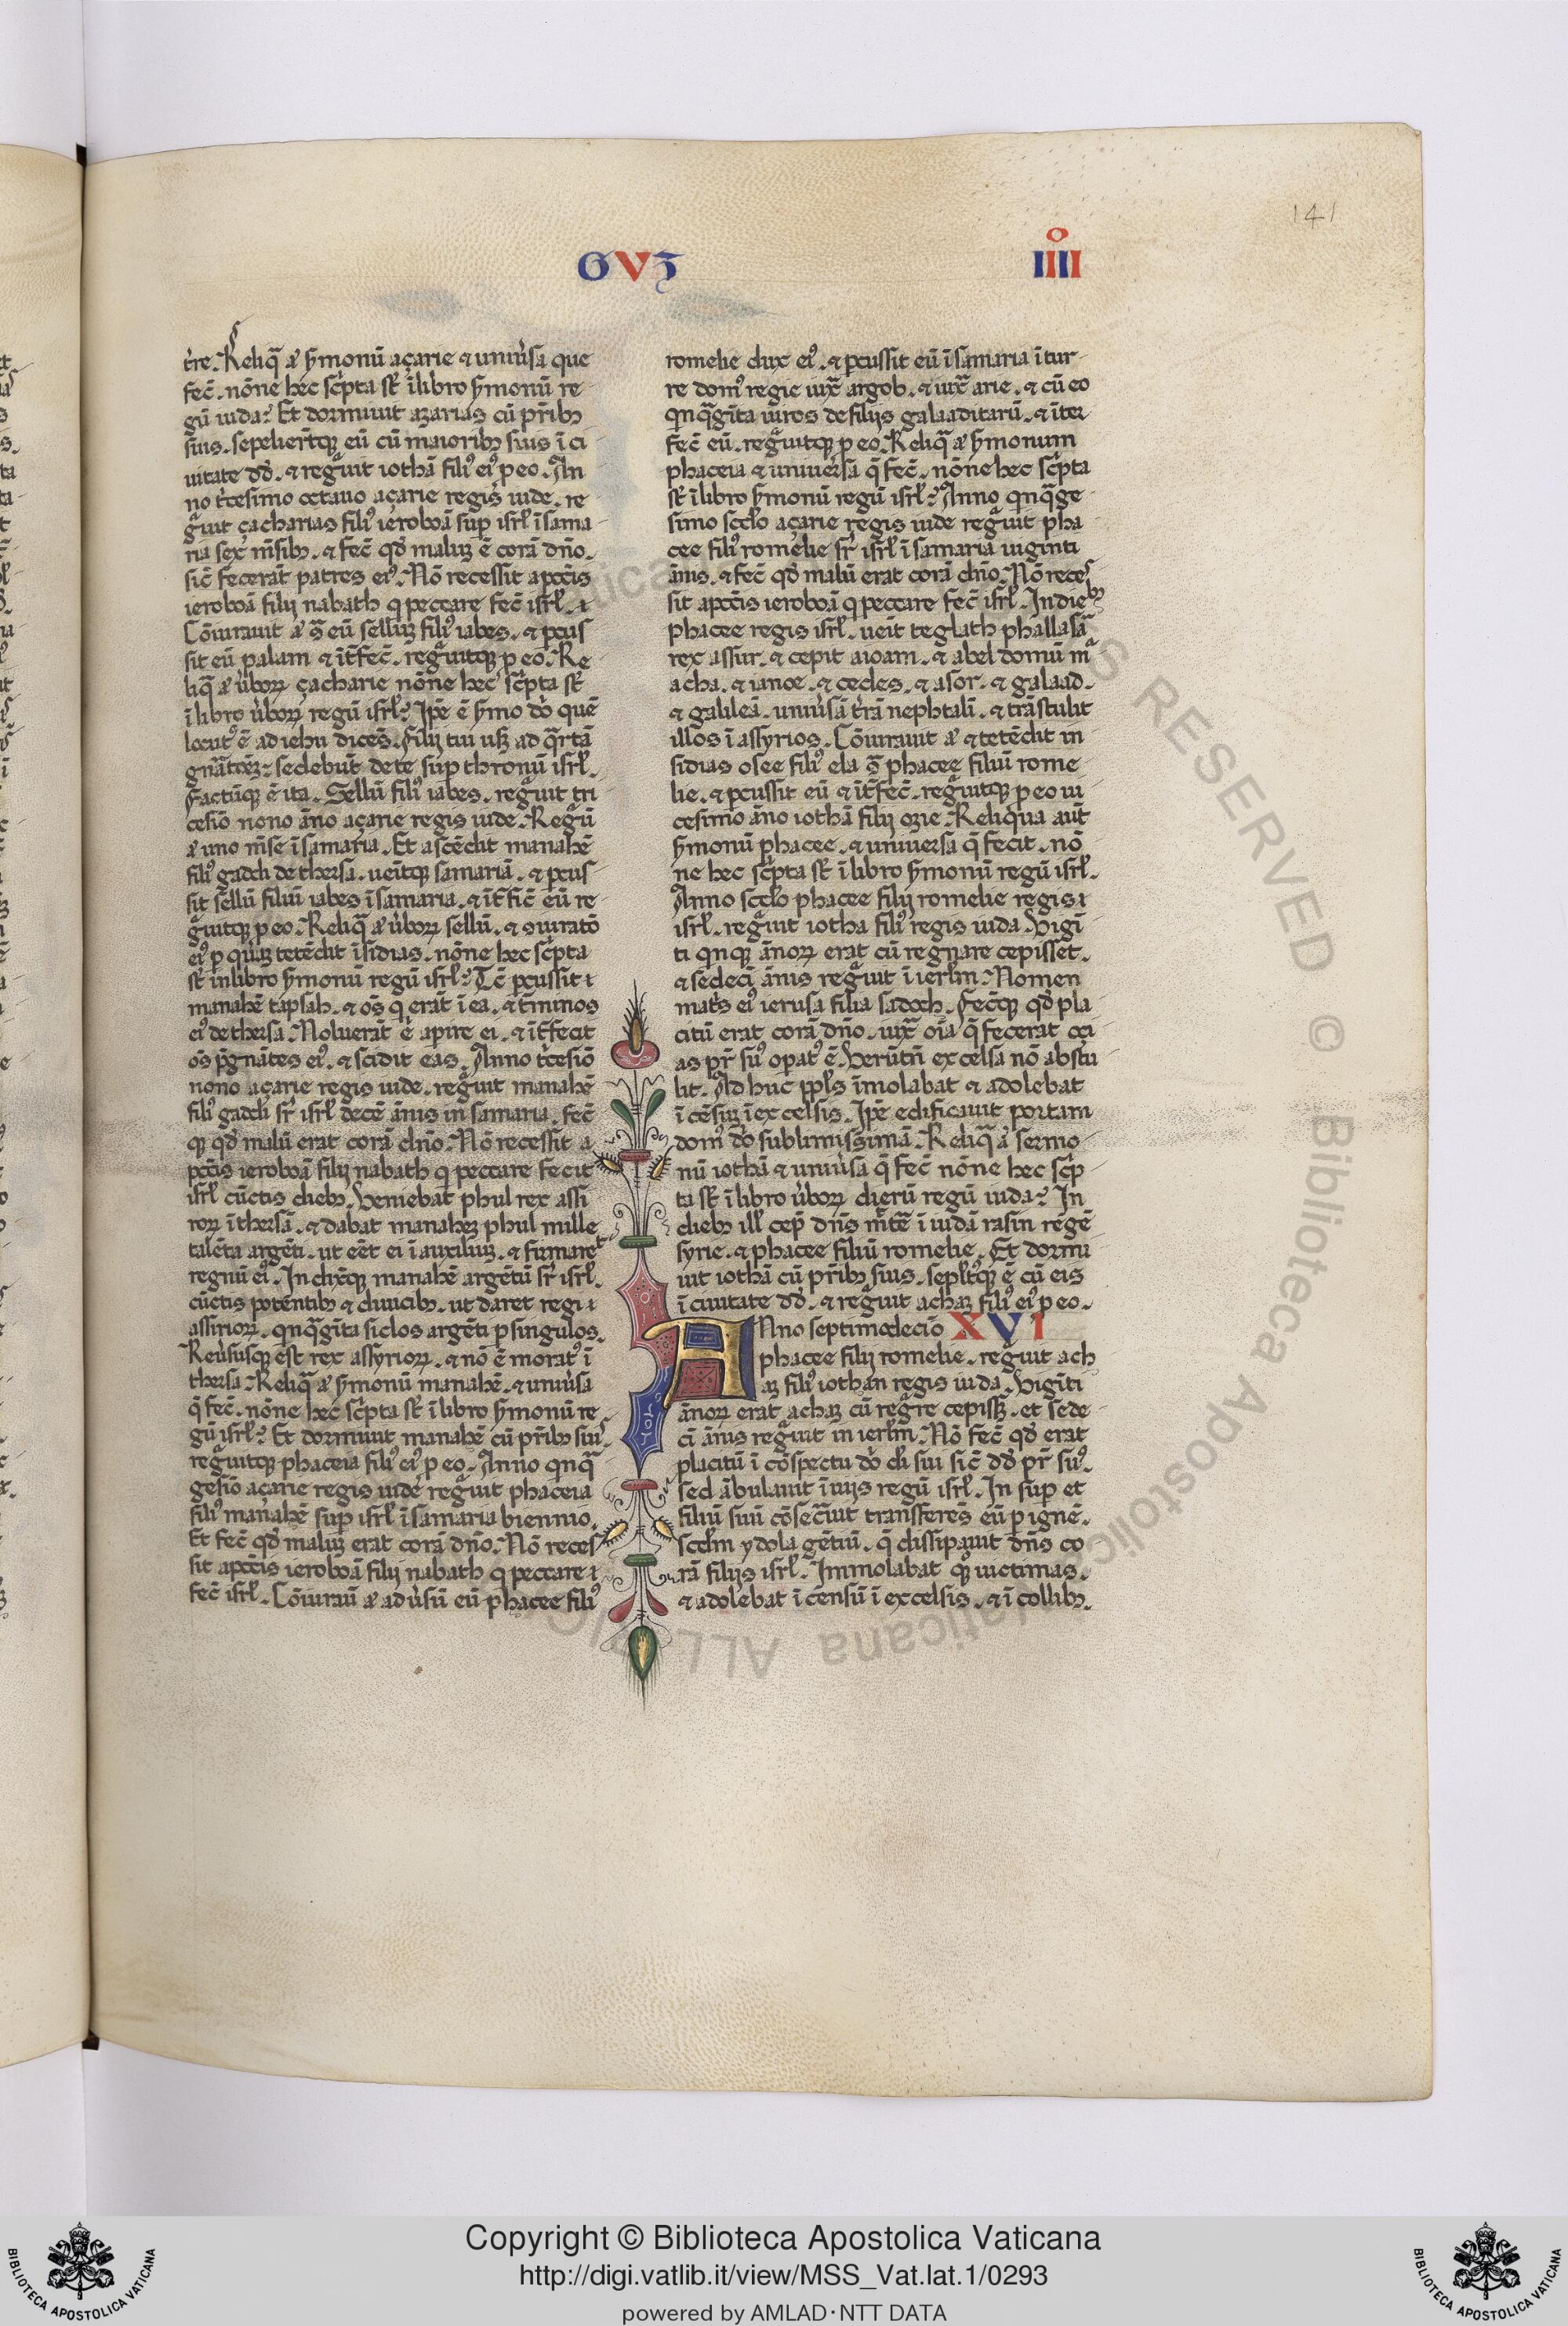 141
GVꝫ
IIIIº
t̾re. Reliq̄ aū s̾monū açarie ⁊ uniu̾sa que
fec̄. nōne hec sc̾pta st̄ ī libro s̾monū re
gū iuda? Et dormiuit azarias cū pr̄ibꝫ
suis. sepelierūtqꝫ eū cū maioribꝫ suis ī ci
uitate dd̄. ⁊ reg̃uit iothā filiꝰ eiꝰ p eo. An
no t̾cesimo octauo açarie regis iude. re
g̃uit çacharias filiꝰ ieroboā sup isrl̄ ī sama
ria sex m̄sibꝫ. ⁊ fec̄ qd̄ maluꝫ ē corā dn̄o.
sic̄ fecerāt patres eiꝰ. Nō recessit a pcc̄is
ieroboā filij nabath q peccare fec̄ isrl̄. ⁊
Cōiurauit aū s̄ eū selluꝫ filiꝰ iabes. ⁊ pcus
sit eū palam ⁊ īt̄fec̄. reg̃uitqꝫ p eo. Re
liq̄ aū u̾boꝝ çacharie nōne hec sc̾pta st̄
ī libro u̾boꝝ regū isrl̄? Ip̄e ē s̾mo dn̄i quē
locutꝰ ē ad iehu dicēs. Filij tui usqꝫ ad q̃rtā
gn̄ātōeꝫ sedebūt de te sup thronū isrl̄.
Factūqꝫ ē ita. Sellū filiꝰ iabes. reg̃uit tri
cesiō nono āno açarie regis iude. Regū
aū uno m̄se ī samaria. Et ascēdit manahē
filiꝰ gaddi de thersa. ueītqꝫ samariā. ⁊ pcus
sit sellū filiū iabes ī samaria. ⁊ īt̄fic̄ eū re
g̃uitqꝫ p eo. Reliq̄ aū u̾boꝝ sellū. ⁊ ↄiuratō
eiꝰ p quaꝫ tetēdit īsidias. nōne hec sc̾pta
st̄ in libro s̾monū regū isrl̄? Tc̄ pcussit ⁊
manahē tapsah. ⁊ oēs q erāt ī ea. ⁊ t̄minos
eiꝰ de thersa. Noluerāt ē apire ei. ⁊ īt̄fecit
oēs p̃gnātes eiꝰ. ⁊ scidit eas. Anno t̾cesiō
nono açarie regis iude. reg̃uit manahē
filiꝰ gaddi sr̄ isrl̄ decē ānis in samaria. fec̄
qꝫ qd̄ malū erat corā dn̄o. Nō recessit a
pcc̄is ieroboā filij nabath q peccare fecit
isrl̄ cūctis diebꝫ. Veniebat phul rex assi
rioꝝ ī thersā. ⁊ dabat manaheꝫ phul mille
talēta argēti. ut eēt ei ī auxiliuꝫ. ⁊ firmaret
regnū eiꝰ. Indixitqꝫ manahē argētū sr̄ isrl̄.
cūctis potētibꝫ ⁊ diuitibꝫ. ut daret regi ⁊
assirioꝝ. qnq̃gīta siclos argēti p singulos.
Reu̾susqꝫ est rex assyrioꝝ. ⁊ nō ē moratꝰ ī
thersa. Reliq̄ aū s̾monū manahē. ⁊ uniu̾sa
q̄ fec̄. nōne hec sc̾pta st̄ ī libro s̾monū re
gū isrl̄? Et dormiuit manahē cū pr̄ibꝫ suis.
reg̃uitqꝫ phaceia filiꝰ eiꝰ p eo. Anno qnq̃
gesiō açarie regis iude reg̃uit phaceia
filiꝰ manahē sup isrl̄ ī samaria biennio.
Et fec̄ qd̄ maluꝫ erat corā dn̄o. Nō reces
sit a pcc̄is ieroboā filij nabath q peccare ⁊
fec̄ isrl̄. Cōiuraū aū adu̾sū eū phacee filiꝰ
romelie dux eiꝰ. ⁊ pcussit eū ī samaria ī tur
re domꝰ regie iuxͣ argob. ⁊ iuxͣ arie. ⁊ cū eo
qnq̃gīta uiros de filijs galaaditarū. ⁊ īter
fec̄ eū. reg̃uitqꝫ p eo. Reliq̄ aū s̾monum
phaceia ⁊ uniuersa q̄ fec̄. nōne hec sc̾pta
st̄ ī libro s̾monū regū isrl̄? Anno qnq̃ge
simo scd̄o açarie regis iude reg̃uit pha
cee filiꝰ romelie sr̄ isrl̄ ī samaria uiginti
ānis. ⁊ fec̄ qd̄ malū erat corā dn̄o. Nō reces
sit a pcc̄is ieroboā q peccare fec̄ isrl̄. In diebꝫ
phacee regis isrl̄. ueīt teglath phallasā
rex assur. ⁊ cepit aioam. ⁊ abel domū m
acha. ⁊ ianoe. ⁊ cedes. ⁊ asor. ⁊ galaad.
⁊ galileā. uniu̾sā t̾rā neptalī. ⁊ trāstulit
illos ī assyrios. Cōiurauit aū ⁊ tetēdit in
sidias osee filiꝰ ela s̄ phacee filiū rome
lie. ⁊ pcussit eū ⁊ īt̄fec̄. reg̃uitqꝫ p eo ui
cesimo āno iothā filij ozie. Reliqua aūt
s̾monū phacee. ⁊ uniuersa q̄ fecit. nō
ne hec sc̾pta st̄ ī libro s̾monū regū isrl̄.
Anno scd̄o phacee filij romelie regis ⁊
isrl̄. reg̃uit iotha filiꝰ regis iuda. Vigī
ti qnqꝫ ānoꝝ erat cū regnare cepisset.
⁊ sedecī ānis reg̃uit ī ierl̄m. Nomen
mat̾s eiꝰ ierusa filia sadoch. Fec̄qꝫ qd̄ pla
citū erat corā dn̄o. iuxͣ oīa q̄ fecerat oçi
as pr̄ suꝰ opatꝰ ē. Verūtn̄ excelsa nō abstu
lit. Ad huc ppl̄s īmolabat ⁊ adolebat
ī cēsuꝫ ī excelsis. Ip̄e edificauit portam
domꝰ dn̄i sublimissimā. Reliq̄ aū sermo
nū iothā ⁊ uniu̾sa q̄ fec̄ nōne hec sc̾p
ta st̄ ī libro u̾boꝝ dierū regū iuda? In
diebꝫ ill̄ cep̄ dn̄s m̄te ī iudā rasin regē
syrie. ⁊ phacee filiū romelie. Et dormi
uit iothā cū pr̄ibꝫ suis. sepl̄tꝰqꝫ ē cū eis
ī ciuitate dd̄. ⁊ reg̃uit achaꝫ filiꝰ eiꝰ p eo.
Anno septimodecīo XVI
phacee filij romelie. reg̃uit ach
aꝫ filiꝰ iothan regis iuda. Vigīti
ānoꝝ erat achaꝫ cū reg̃re cepissꝫ. et sede
cī ānis reg̃uit in ierl̄m. Nō fec̄ qd̄ erat
placitū ī cōspectu dn̄i di sui sic̄ dd̄ pr̄ suꝰ.
sed ābulauit ī uijs regū isrl̄. In sup et
filiū suū cōsec̃uit transferēs eū p ignē.
scd̄m ydola gētiū. q̄ dissipauit dn̄s co
rā filijs isrl̄. Immolabat qꝫ uictimas.
⁊ adolebat ī censū ī excelsis. ⁊ ī collibꝫ.
Copyright © Biblioteca Apostolica Vaticana
http://digi.vatlib.it/view/MSS_Vat.lat.1/0293
powered by AMLAD·NTT DATA
BIBLIOTECA APOSTOLICA VATICANA
BIBLIOTECA APOSTOLICA VATICANA